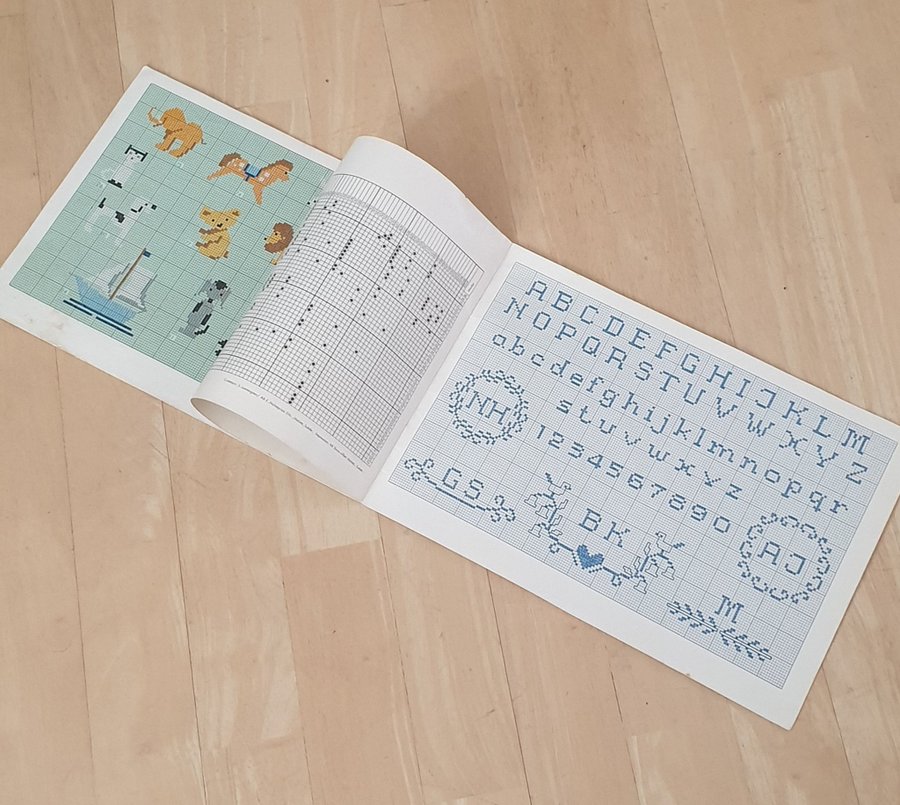 ABCDEFGHIJKLM
NOPQRSTUVWXYZ
abcdefghijklmnopqr
stuvwxyz
1234567890
NH
GS
BK
AJ
M